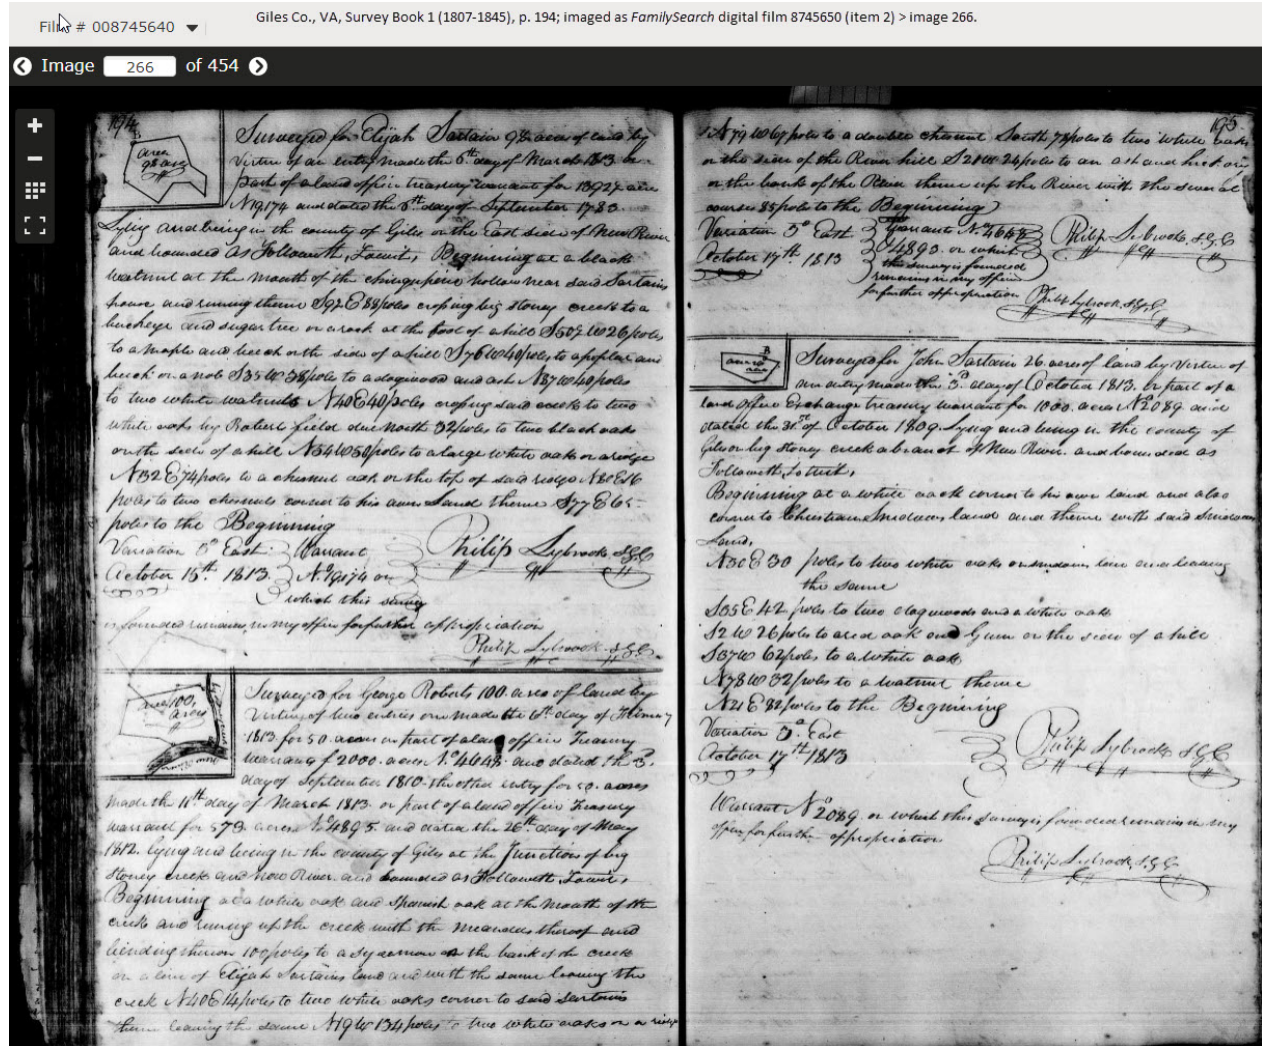 Giles Co., VA, Survey Book 1 (1807-1845), p. 194; imaged as FamilySearch digital film 8745650 (item 2) > image 266.
Film # 008745640
Image 266 of 454
194
area
98 acrs
Surveyed for Elijah Sartain 98 acres of land by
Virtue of an entry made the 6th day of March 1813 on
part of a land office treasury warrant for acres
No 19174 and dated the 5th day of September 1783.
Lying and being in the county of Giles on the East side of New River
and bounded as Followeth, Towit, Beginning at a black
walnut at the mouth of the chinquepine hollow near said Sartains
house and running thence E 88 poles crossing big stoney creek to a
buckeye and sugar tree on a rock at the foot of a hill W 26 poles
to a maple and beech on the side of a hill S 76 W 40 poles to a poplar and
beech on a nob S 35 W 38 poles to a dogwood and ash N 87 W 40 poles
to two white walnuts N 40 E 40 poles crossing said creek to two
white oaks by Roberts field due North 32 poles to two black oaks
on the side of a hill N 54 W 50 poles to a large white oak on a ridge
N 32 E 74 poles to a chesnut oak on the top of said ridge N 80 E 16
poles to two chesnuts corner to his own Land thence S 77 E 65
poles to the Beginning
Variation 3° East Warrant Philip Lybrook, S.G.C
October 15th 1813 No 19174 on
which this survey
is founded remains in my office for further appropriation
Philip Lybrook S.G.C.
area 100
acres
Surveyed for George Roberts 100 acres of land by
Virtue of two entries one made the 6th day of
1813 for 50 acres on part of a land office Treasury
warrant f 2000 acres No 4648 and dated the 3d
day of September 1810. the other entry for 50 acres
made the 11th day of March 1813 on part of a land office Treasury
warrant for 578 acres No 4895 and dated the 26th day of May
1812. lying and being in the county of Giles at the Junction of big
Stoney creek and New River and bounded as Followeth Towit,
Beginning at a white oak and Spanish oak at the mouth of the
creek and runing up the creek with the meanders thereof and
binding thereon 100 poles to a Sycamore on the bank of the creek
on a line of Elijah Sartains land and with the same leaving the
creek N 40 E 14 poles to two white oaks corner to said Sartains
thence leaving the same N 19 W 134 poles to two white oaks on a ridge
195
N 79 W 67 poles to a double chesnut South 78 poles to two white oaks
on the side of the River hill S 21 W 24 poles to an ash and hickory
on the bank of the River thence up the River with the several
courses 85 poles to the Beginning
Variation 3° East Warrant No 4648
October 17th 1813 & 4895 on which Philip Lybrook, S.G.C
this survey is founded
remains in my office
for further appropriation Philip Lybrook, S.G.C.
area 26
acres
Surveyed for John Sartain 26 acres of land by Virtue of
an entry made this 3d day of October 1813. on part of a
land office Exchange treasury warrant for 1000 acres No 2089 and
dated the 31st of October 1809. Lying and being in the county of
Giles on big Stoney creek a branch of New River and bounded as
Followeth, Towit,
Beginning at a white oak corner to his own land and also
corner to Christian Snidows land and thence with said Snidows
Land,
N 30 E 30 poles to two white oaks on snidows line and leaving
the same
S 35 E 42 poles to two dogwoods and a white oak
S 2 W 26 poles to a red oak and Gum on the side of a hill
S 37 W 62 poles to a white oak
N 78 W 32 poles to a walnut thence
N 21 E 82 poles to the Beginning
Variation 3° East
October 17th 1813 Philip Lybrook, S.G.C
Warrant No 2089 on which this survey is founded remains in my
office for further appropriation
Philip Lybrook, S.G.C.